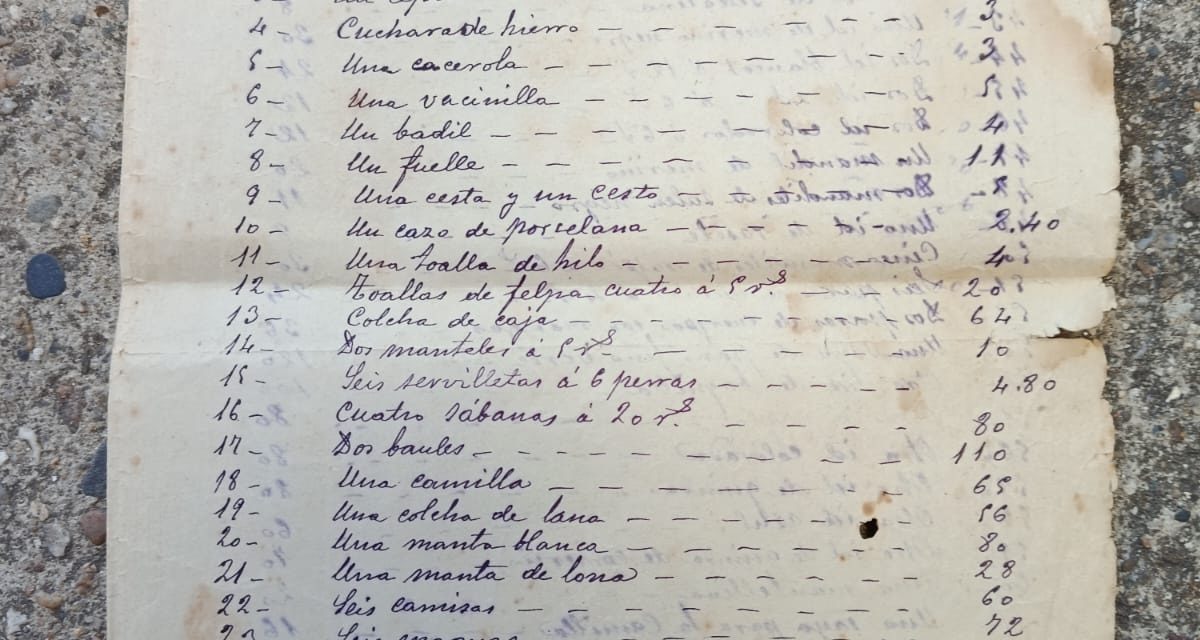 4- Cuchara de hierro - - - - - - 3
5- Una cacerola - - - - - - - 3
6- Una vacinilla - - - - - - - 5
7- Un badil - - - - - - - - 4
8- Un fuelle - - - - - - - 11
9- Una cesta y un cesto
10- Un cazo de porcelana - - - - 2.40
11- Una toalla de hilo - - - - - - 4
12- Toallas de felpa cuatro á 5 rs. - 20
13- Colcha de caja - - - - - - - 64
14- Dos manteles á 5 rs. - - - - - 10
15- Seis servilletas á 6 perras - - - - - 4.80
16- Cuatro sábanas á 20 rs. - - - - - 80
17- Dos baules - - - - - - - - - 110
18- Una camilla - - - - - - - - 65
19- Una colcha de lana - - - - - - 56
20- Una manta blanca - - - - - - 80
21- Una manta de lona - - - - - - 28
22- Seis camisas - - - - - - - - 60
23 Seis 72